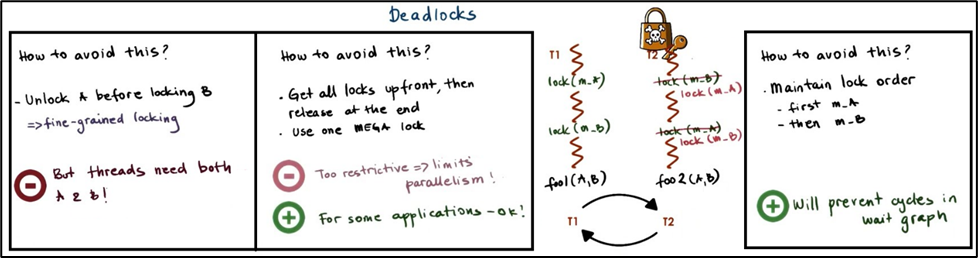 Deadlocks
How to avoid this?
- Unlock A before locking B
=> fine-grained locking
But threads need both
A & B!
How to avoid this?
. Get all locks upfront, then
release at the end
. Use one MEGA lock
Too restrictive => limits
parallelism!
For some applications - OK!
T1
lock (m_A)
lock (m_B)
foo1(A,B)
T2
lock (m_B)
lock (m_A)
lock (m_A)
lock (m_B)
foo2(A,B)
T1
T2
How to avoid this?
. Maintain lock order
- first m_A
- then m_B
Will prevent cycles in
wait graph